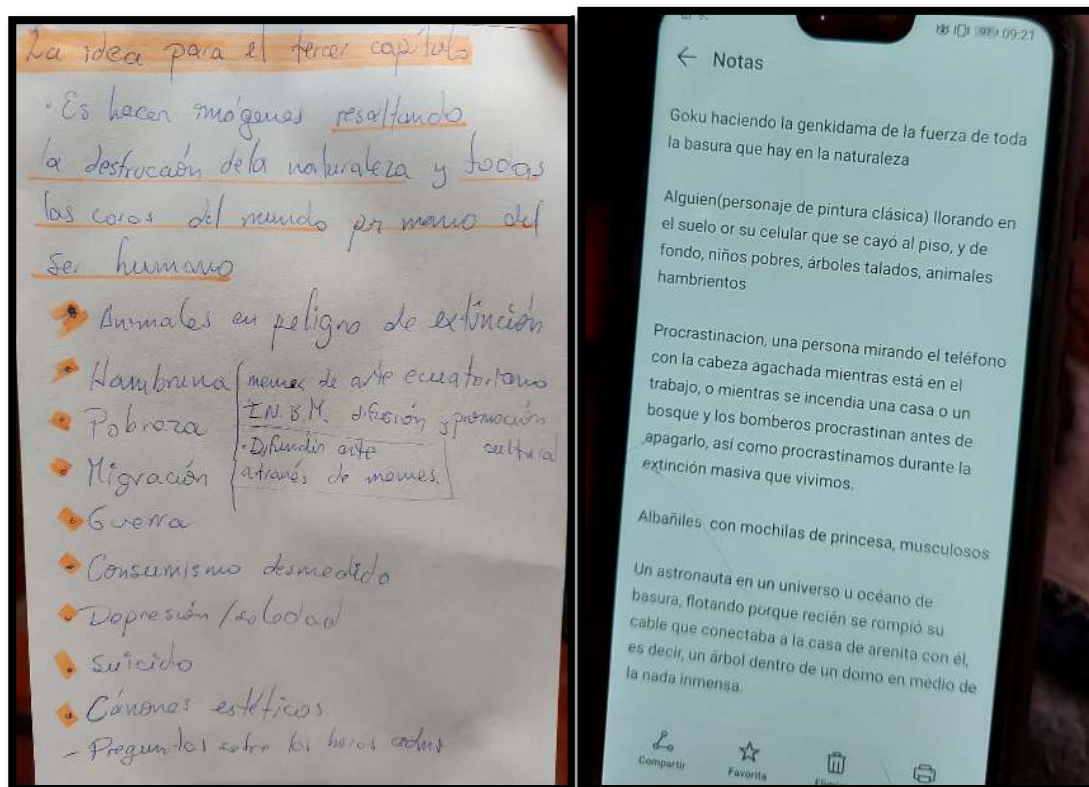 La idea para el tercer capítulo
· Es hacer imágenes resaltando
la destrucción dela naturaleza y todas
las cosas del mundo por mano del
ser humano
Animales en peligro de extinción
Hambruna
Pobreza
Migración
memes de arte ecuatoriano
difusión y promoción
cultural
· Difundir arte
através de memes.
Guerra
Consumismo desmedido
Depresión / soledad
Suicidio
Cánones estéticos
- Preguntas sobre los
09:21
← Notas
Goku haciendo la genkidama de la fuerza de toda
la basura que hay en la naturaleza
Alguien(personaje de pintura clásica) llorando en
el suelo or su celular que se cayó al piso, y de
fondo, niños pobres, árboles talados, animales
hambrientos
Procrastinacion, una persona mirando el teléfono
con la cabeza agachada mientras está en el
trabajo, o mientras se incendia una casa o un
bosque y los bomberos procrastinan antes de
apagarlo, así como procrastinamos durante la
extinción masiva que vivimos.
Albañiles con mochilas de princesa, musculosos
Un astronauta en un universo u océano de
basura, flotando porque recién se rompió su
cable que conectaba a la casa de arenita con él,
es decir, un árbol dentro de un domo en medio de
la nada inmensa.
Compartir
Favorita